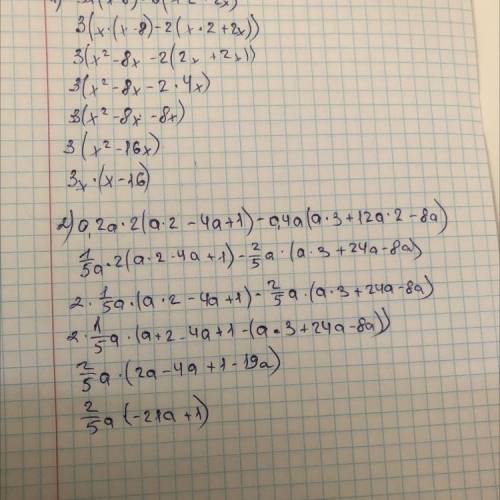 3(x·(x-8)-2(x·2+2x))
3(x²-8x-2(2x+2x))
3(x²-8x-2·4x)
3(x²-8x-8x)
3(x²-16x)
3x·(x-16)
2) 0,2a·2(a·2-4a+1)-0,4a(a·3+12a·2-8a)
1/5a·2(a·2-4a+1)-2/5a·(a·3+24a-8a)
2·1/5a·(a·2-4a+1)-2/5a·(a·3+24a-8a)
2·1/5a·(a+2-4a+1-(a·3+24a-8a))
2/5a·(2a-4a+1-19a)
2/5a(-21a+1)